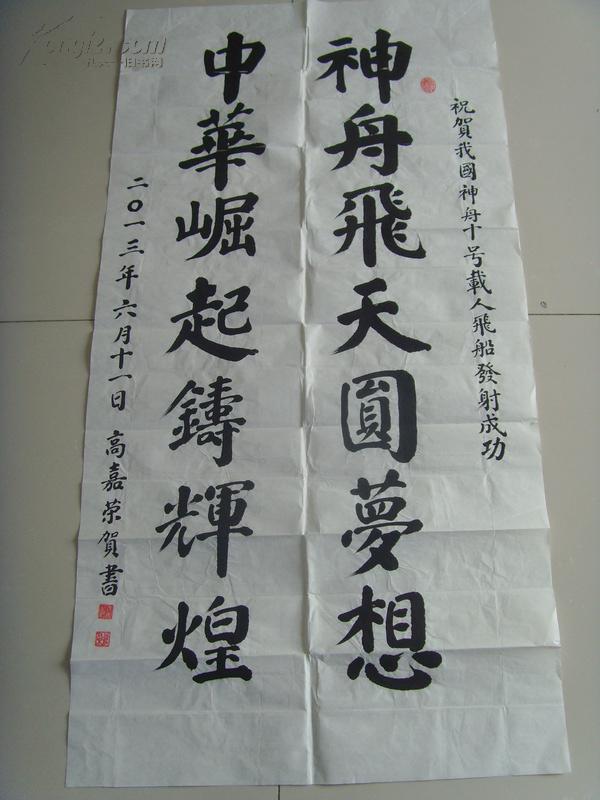 祝賀我國神舟十号載人飛船發射成功
神舟飛天圓夢想
中華崛起鑄輝煌
二〇一三年六月十一日 高嘉荣賀書